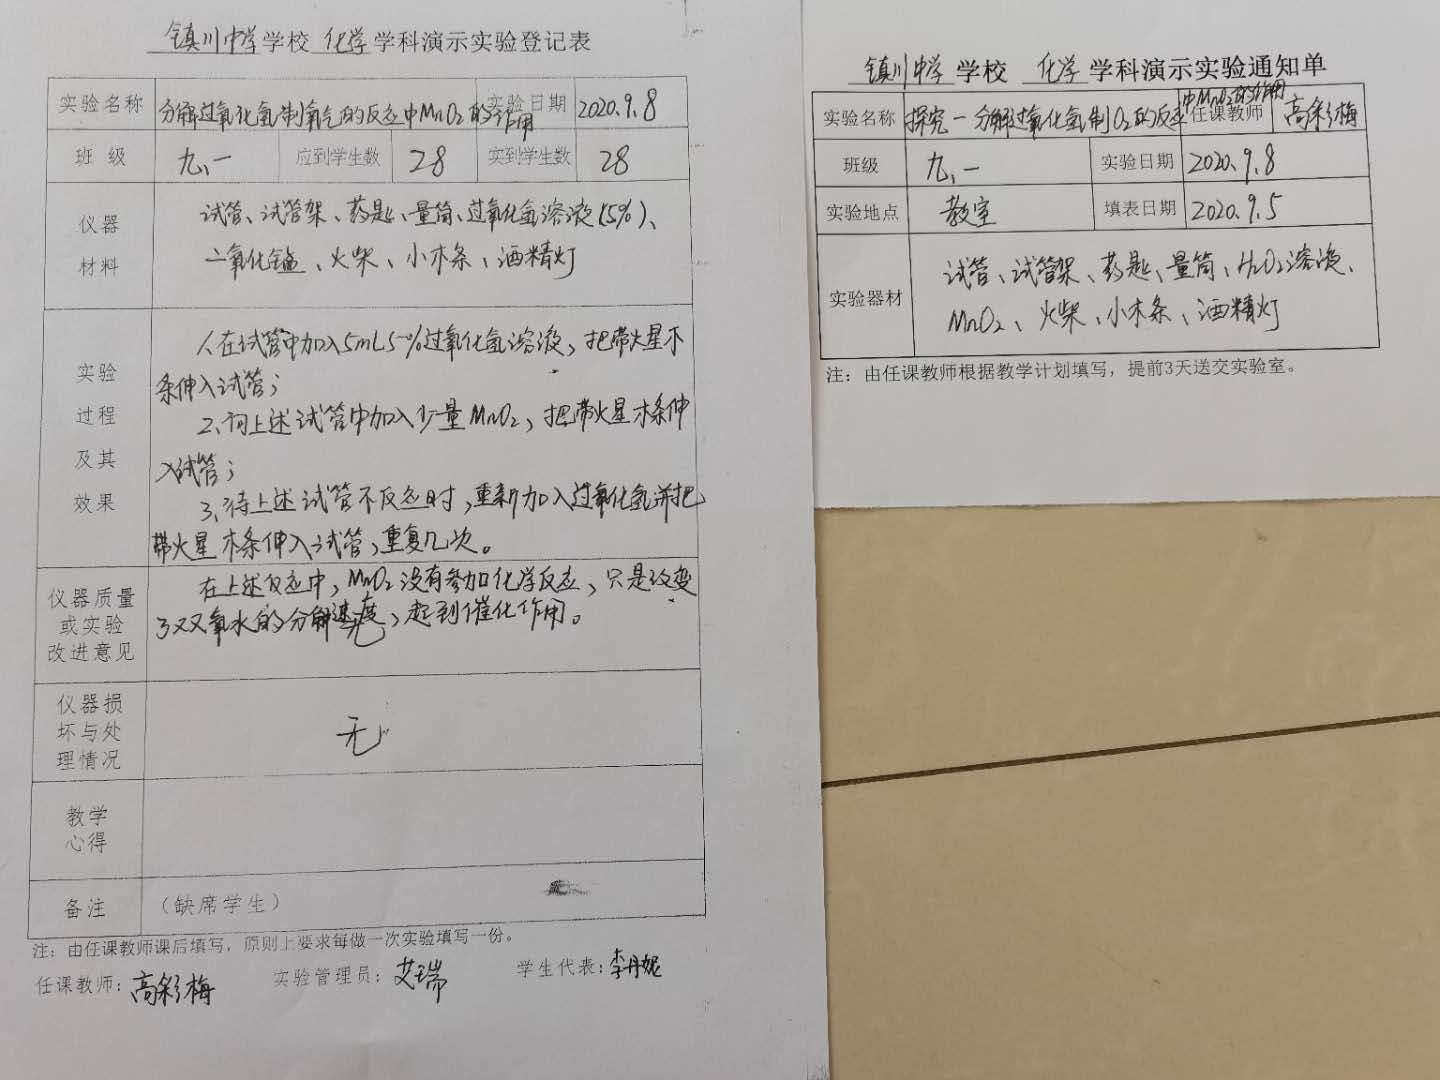 镇川中学学校 化学学科演示实验登记表
实验名称 分解过氧化氢制氧气的反应中MnO2的作用 实验日期 2020.9.8
班 级 九.一 应到学生数 28 实到学生数 28
仪器 试管、试管架、药匙、量筒、过氧化氢溶液(5%)、
材料 二氧化锰、火柴、小木条、酒精灯
实验
过程
及其
效果
1.在试管中加入5mL5%过氧化氢溶液,把带火星木
条伸入试管;
2.向上述试管中加入少量MnO2,把带火星木条伸
入试管;
3.待上述试管不反应时,重新加入过氧化氢并把
带火星木条伸入试管,重复几次。
仪器质量
或实验
改进意见
在上述反应中,MnO2没有参加化学反应,只是改变
了双氧水的分解速度,起到催化作用。
仪器损
坏与处
理情况
无
教学
心得
备注 (缺席学生)
注:由任课教师课后填写,原则上要求每做一次实验填写一份。
任课教师:高彩梅 实验管理员:艾瑞 学生代表:李丹妮
镇川中学 学校 化学 学科演示实验通知单
实验名称 探究一分解过氧化氢制O2的反应中MnO2的作用 任课教师 高彩梅
班级 九.一 实验日期 2020.9.8
实验地点 教室 填表日期 2020.9.5
实验器材 试管、试管架、药匙、量筒、H2O2溶液、
MnO2、火柴、小木条、酒精灯
注:由任课教师根据教学计划填写,提前3天送交实验室。